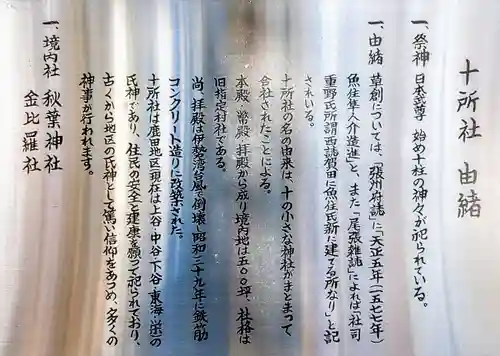 十所社 由緒
一、祭神 日本武尊 始め十柱の神々が祀られている。
一、由緒 草創については、「張州府誌」に「天正五年(一五七七年)
魚住隼人介造進」と、また「尾張雑誌」によれば「社司
重野氏所謂西誌賀田に魚住氏新に建てる所なり」と記
されている。
十所社の名の由来は、十の小さな神社がまとまって
合社されたことによる。
本殿、幣殿、拝殿から成り、境内地は五〇〇坪、社格は
旧指定村社である。
尚、拝殿は伊勢湾台風で倒壊し昭和三十九年に鉄筋
コンクリート造りに改築された。
十所社は鹿田地区(現在は上谷・中谷・下谷・東海・栄)の
氏神であり、住民の安全と健康を願って祀られており、
古くから地区の氏神として篤い信仰をあつめ、多くの
神事が行われます。
一、境内社 秋葉神社
金比羅社